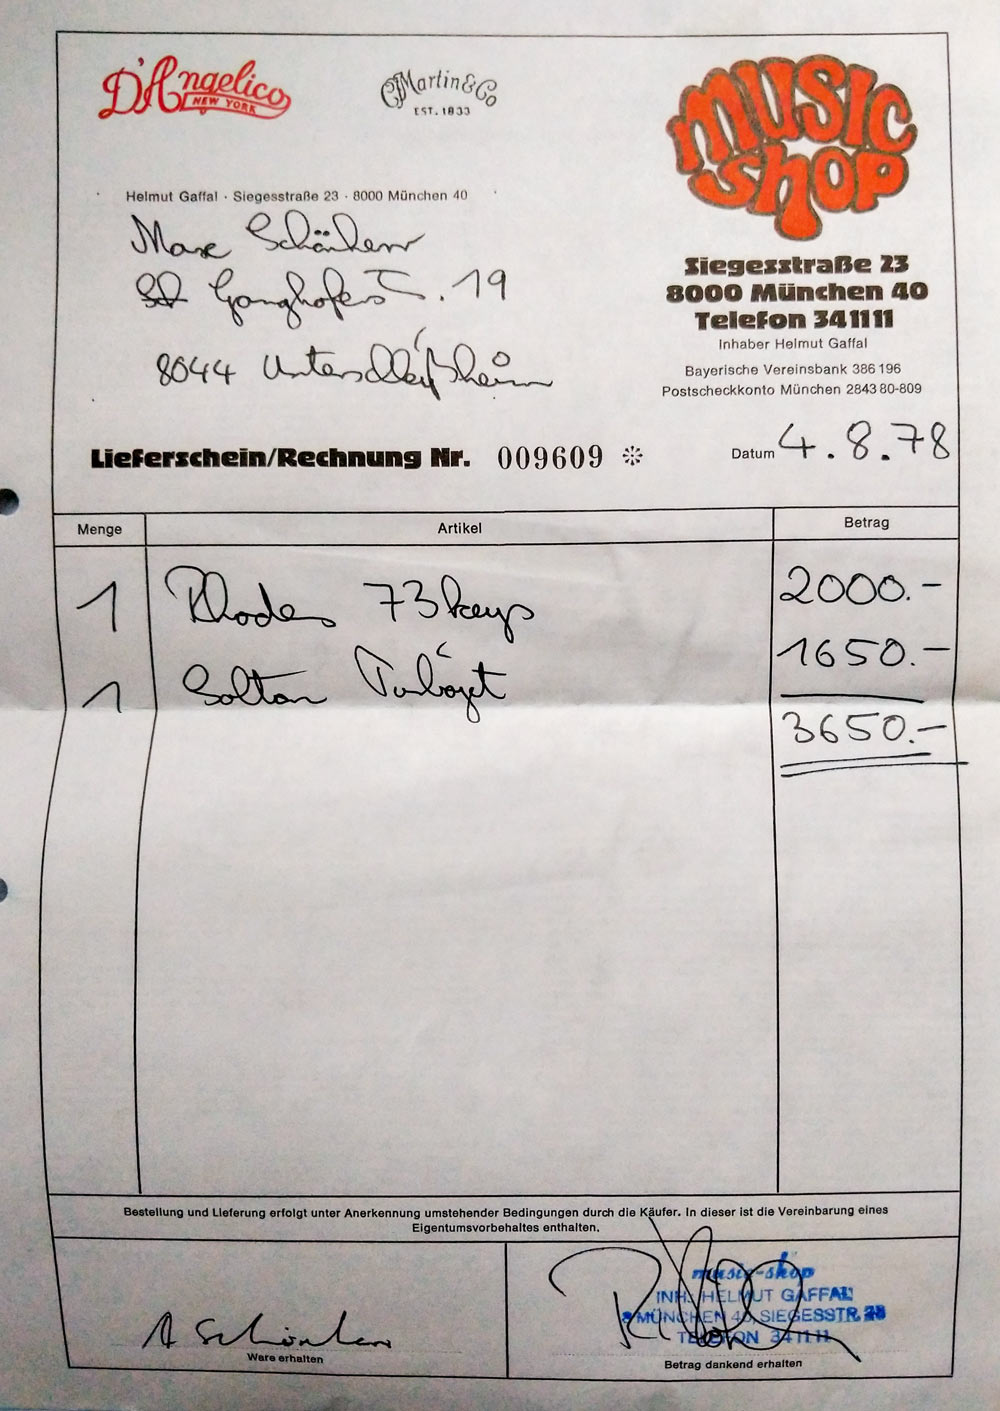 D'Angelico
NEW YORK
C.F. Martin & Co
EST. 1833
MUSIC
SHOP
Helmut Gaffal · Siegesstraße 23 · 8000 München 40
Siegesstraße 23
8000 München 40
Telefon 341111
Inhaber Helmut Gaffal
Bayerische Vereinsbank 386 196
Postscheckkonto München 2843 80-809
Max
Ganghoferstr. 19
8044 Unterschleißheim
Lieferschein/Rechnung Nr. 009609
Datum 4.8.78
Menge Artikel Betrag
1 Rhodes 73 keys 2000.-
1 Solton 1650.-
3650.-
Bestellung und Lieferung erfolgt unter Anerkennung umstehender Bedingungen durch die Käufer. In dieser ist die Vereinbarung eines
Eigentumsvorbehaltes enthalten.
Ware erhalten
music-shop
INH. HELMUT GAFFAL
8 MÜNCHEN 40, SIEGESSTR. 23
TELEFON 341111
Betrag dankend erhalten